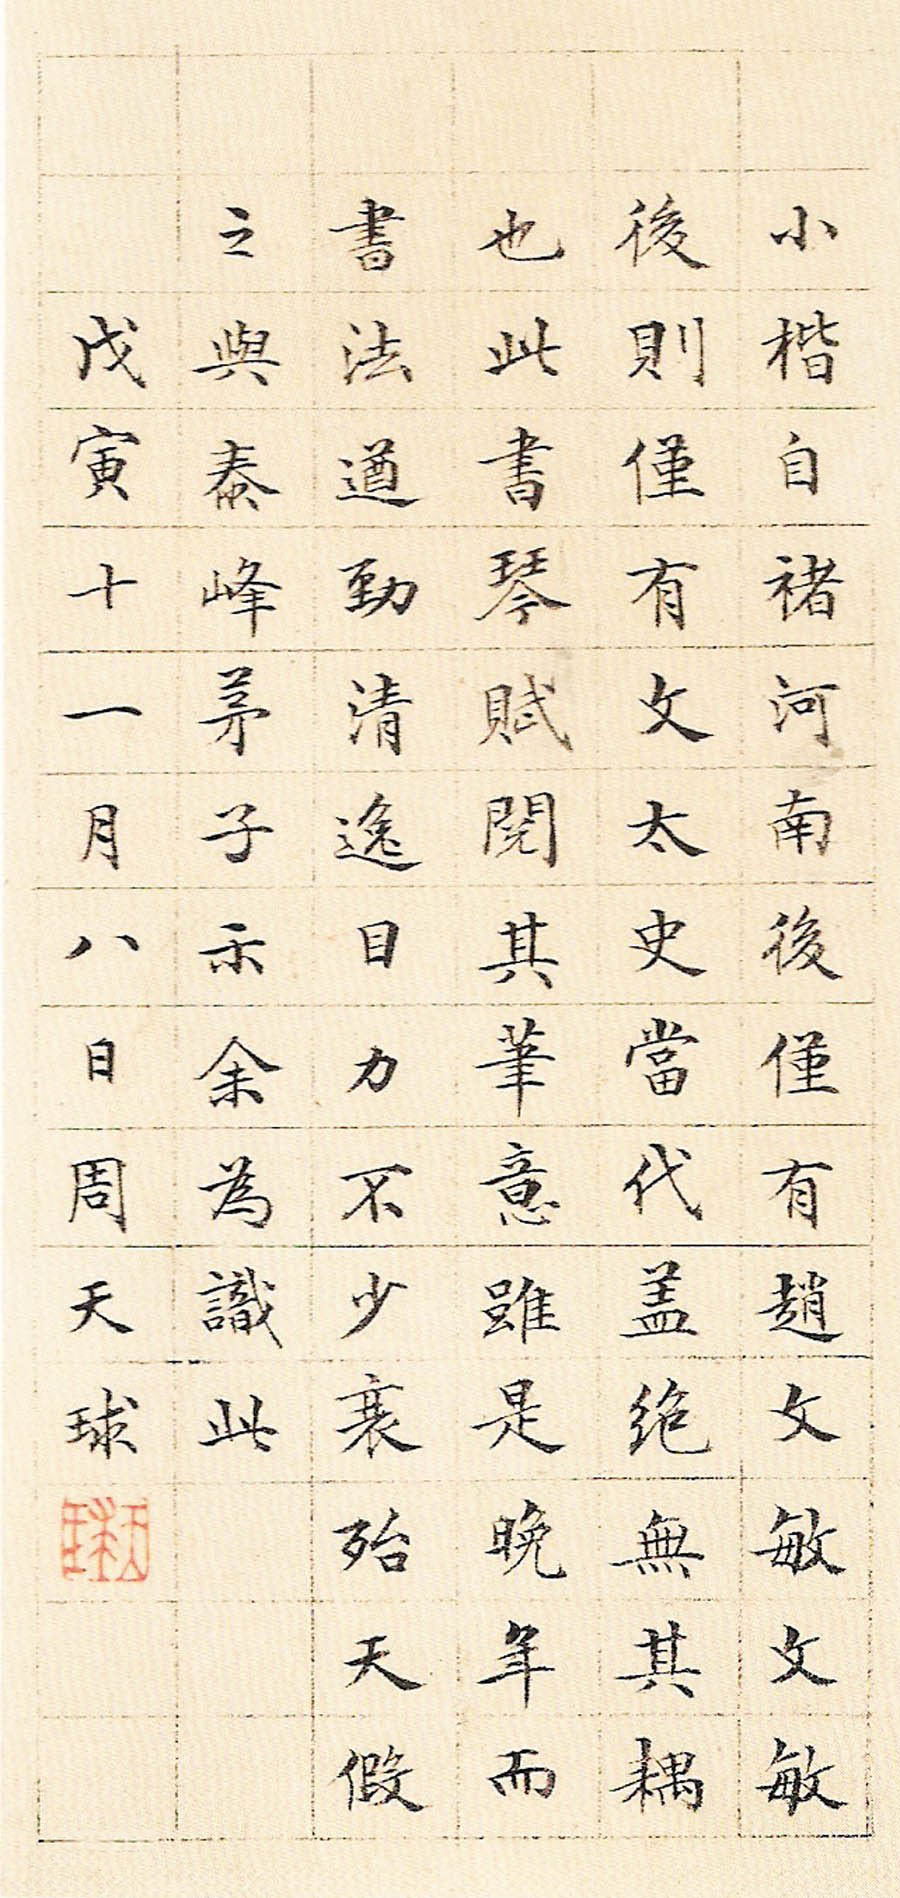 小楷自褚河南後僅有趙文敏文敏
後則僅有文太史當代蓋絶無其耦
也此書琴賦閱其筆意雖是晚年而
書法遒勁清逸目力不少衰殆天假
之與泰峰茅子示余為識此
戊寅十一月八日周天球